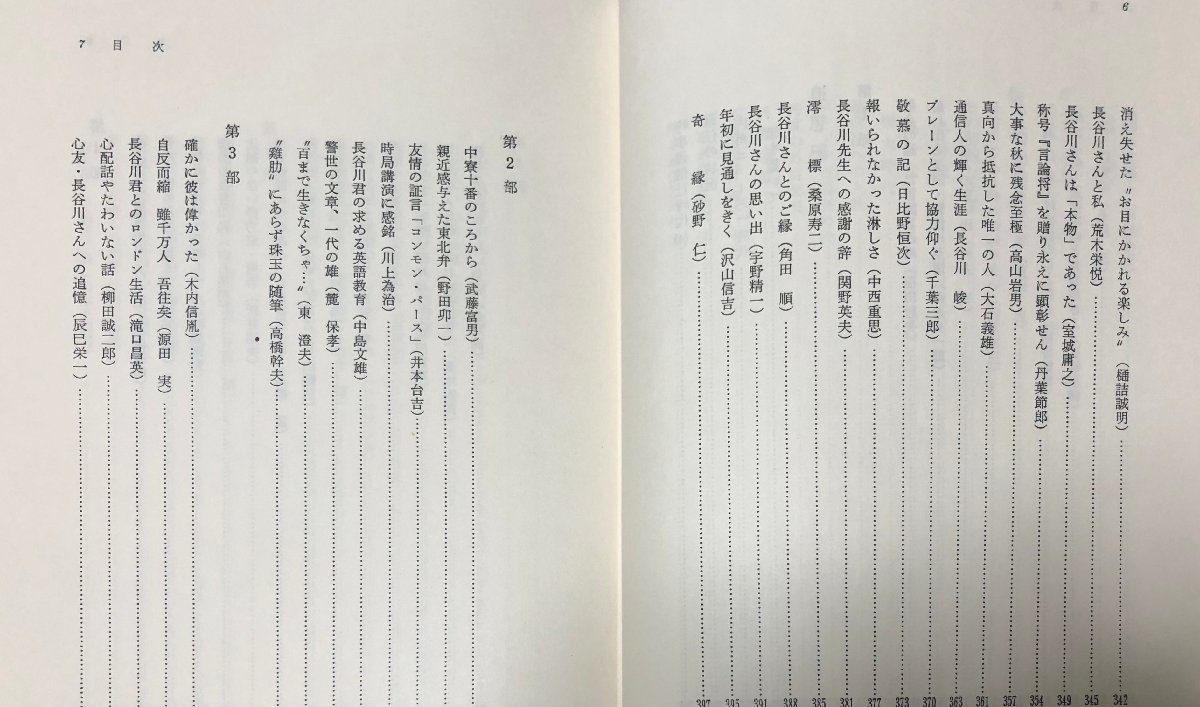 6
消え失せた〝お目にかかれる楽しみ〟（樋詰誠明）……342
長谷川さんと私（荒木栄悦）……345
長谷川さんは「本物」であった（室城庸之）……349
称号『言論将』を贈り永えに顕彰せん（丹葉節郎）……354
大事な秋に残念至極（高山岩男）……357
真向から抵抗した唯一の人（大石義雄）……361
通信人の輝く生涯（長谷川　峻）……363
ブレーンとして協力仰ぐ（千葉三郎）……370
敬慕の記（日比野恒次）……373
報いられなかった淋しさ（中西重思）……377
長谷川先生への感謝の辞（関野英夫）……381
澪標（桑原寿二）……385
長谷川さんとのご縁（角田　順）……388
長谷川さんの思い出（宇野精一）……391
年初に見通しをきく（沢山信吉）……395
奇縁（砂野　仁）……397
7　目次
第2部
中寮十番のころから（武藤富男）……
親近感与えた東北弁（野田卯一）……
友情の証言「コンモン・パース」（井本台吉）……
時局講演に感銘（川上為治）……
長谷川君の求める英語教育（中島文雄）……
警世の文章、一代の雄（麓　保孝）……
〝百まで生きなくちゃ…〟（東　澄夫）……
〝雞肋〟にあらず珠玉の随筆（高橋幹夫）……
第3部
確かに彼は偉かった（木内信胤）……
自反而縮　雖千万人　吾往矣（源田　実）……
長谷川君とのロンドン生活（滝口昌英）……
心配話やたわいない話（柳田誠二郎）……
心友・長谷川さんへの追憶（辰巳栄一）……